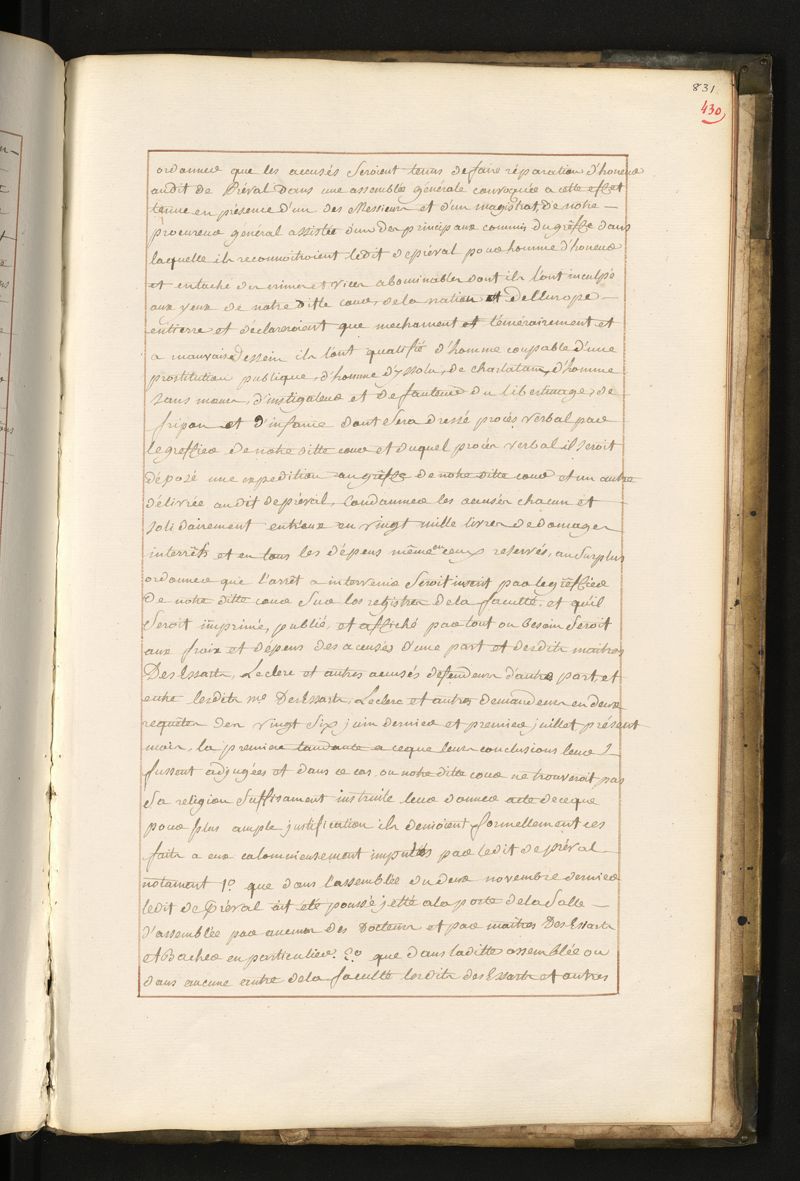 831
430
ordonner que les accusés seroient tenus de faire réparation d'honneur
audit de Préval dans une assemblée générale convoquée a cette effet
tenue en présence d'un des Messieurs et d'un magistrat de notre
procureur général assisté d'un des principaux commis du grêffe dans
laquelle ils reconnoitroient ledit de préval pour homme d'honneur
et entaché des crimes et vices abominables dont ils l'ont inculpé
aux yeux de notre ditte cour, de la nation et de l'Europe
entierre et déclareroient que mechament et témérairement et
a mauvais dessein ils l'ont qualifié d'homme coupable d'une
prostitution publique, d'homme dyssolu, de charlatan, d'homme
sans mœurs, d'instigateur et de fauteur du libertinage, de
fripon et d'infame dont sera dressé procès verbal par
le greffier de notre ditte cour et duquel procès verbal il seroit
déposé une expedition au grêffe de notre ditte cour et un autre
délivrée au dit de préval, Condamner les accusés chacun et
solidairement entr'eux en vingt mille livres de domages
interrêts et en tous les dépens même en ceux reservés, au surplus
ordonner que l'arrêt a intervenir seroit inscrit par le greffier
de notre ditte cour sur les registres de la faculté, et qu'il
seroit imprimé, publié, et affiché par tout ou besoin seroit
aux fraix et dépens des accusés d'une part et desdits maitres
Des Essarts, Leclerc et autres accusés défendeurs d'autre part et
entre lesdits me Des Essarts, Leclerc et autres demandeurs en deux
requêtes des vingt six juin dernier et premier juillet présent
mois, la premiere tandante a ceque leurs conclusions leur
fussent adjugées et dans ce cas, ou notre ditte cour ne trouveroit pas
sa religion suffisament instruite leur donner acte de ceque
pour plus ample justification ils denioient formellement les
faits a eux calomnieusement imputés par ledit de préval
notament 1o. que dans l'assemblée du deux novembre dernier
ledit de Préval ait été poussé jetté a la porte de la Salle
d'assemblée par aucuns des Docteurs et par maitres Des Essarts
et Bacher en particulier. 2o que dans laditte assemblée ou
dans aucune autre de la faculté lesdits des Essarts et autres